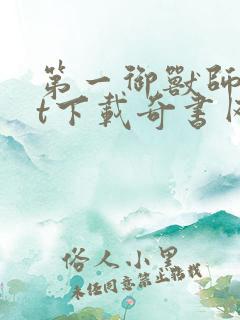 第一御獸師
t下載奇書
俗人小黑
未经同意禁止转载